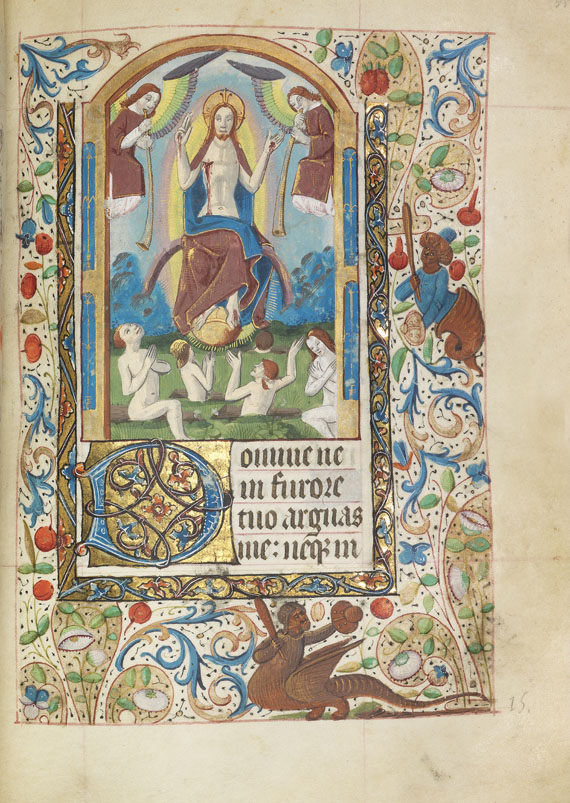 Domine ne
in furore
tuo arguas
me: neqz in
15.